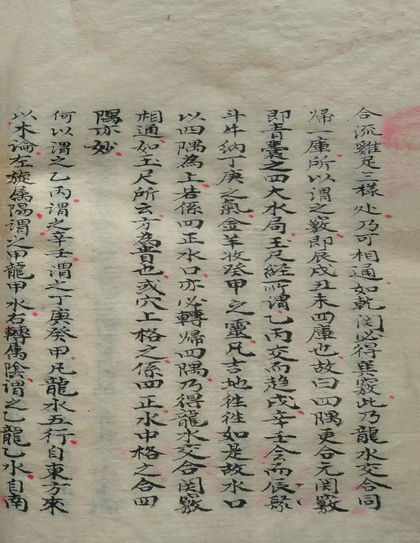 合流雞足三樣处乃可相通如乾関必得巽竅此乃龍水交合同
帰一庫所以谓之竅即辰戌丑未四庫也故曰四隅更合元関竅
即青囊之四大水局玉尺経所谓乙丙交而趋戌辛壬会而辰聚
斗牛納丁庚之氣金羊妆癸甲之灵凡吉地徃徃如是故水口
以四隅為上若係四正水口亦必轉帰四隅乃得龍水交合関竅
相通如玉尺所云方為貴也或穴上格之係四正水中格之合四
隅亦妙
何以谓之乙丙谓之辛壬谓之丁庚癸甲凡龍水五行自東方來
以木論左旋属陽谓之甲龍甲水右轉属陰谓之乙龍乙水自南